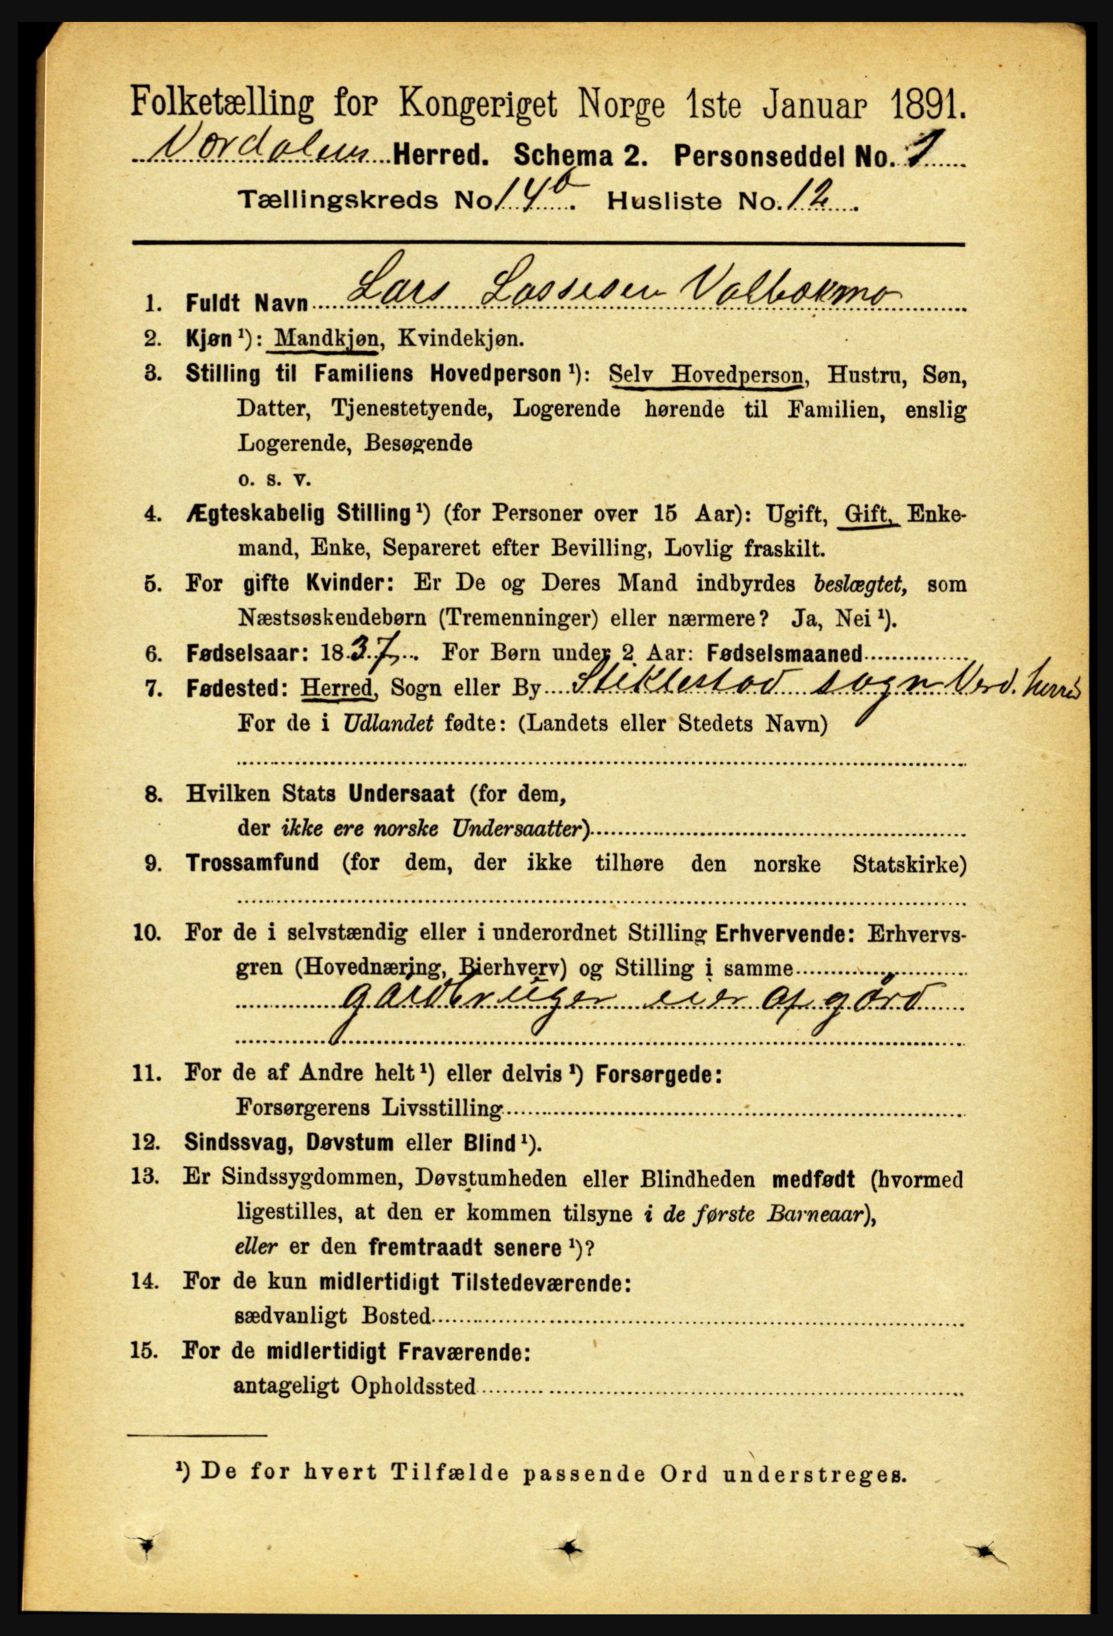 Folketælling for Kongeriget Norge 1ste Januar 1891.
Værdalens Herred. Schema 2. Personseddel No. 1
Tællingskreds No. 14b. Husliste No. 12.
1. Fuldt Navn Lars Lassesen Valbækmo
2. Kjøn ¹): Mandkjøn, Kvindekjøn.
3. Stilling til Familiens Hovedperson ¹): Selv Hovedperson, Hustru, Søn,
Datter, Tjenestetyende, Logerende hørende til Familien, enslig
Logerende, Besøgende
o. s. v.
4. Ægteskabelig Stilling ¹) (for Personer over 15 Aar): Ugift, Gift, Enke-
mand, Enke, Separeret efter Bevilling, Lovlig fraskilt.
5. For gifte Kvinder: Er De og Deres Mand indbyrdes beslægtet, som
Næstsøskendebørn (Tremenninger) eller nærmere? Ja, Nei ¹).
6. Fødselsaar: 1837. For Børn under 2 Aar: Fødselsmaaned
7. Fødested: Herred, Sogn eller By Stiklestad sogn Verd. herred
For de i Udlandet fødte: (Landets eller Stedets Navn)
8. Hvilken Stats Undersaat (for dem,
der ikke ere norske Undersaatter)
9. Trossamfund (for dem, der ikke tilhøre den norske Statskirke)
10. For de i selvstændig eller i underordnet Stilling Erhvervende: Erhvervs-
gren (Hovednæring, Bierhverv) og Stilling i samme
gårdbruger eier af gård
11. For de af Andre helt ¹) eller delvis ¹) Forsørgede:
Forsørgerens Livsstilling
12. Sindssvag, Døvstum eller Blind ¹).
13. Er Sindssygdommen, Døvstumheden eller Blindheden medfødt (hvormed
ligestilles, at den er kommen tilsyne i de første Barneaar),
eller er den fremtraadt senere ¹)?
14. For de kun midlertidigt Tilstedeværende:
sædvanligt Bosted
15. For de midlertidigt Fraværende:
antageligt Opholdssted
¹) De for hvert Tilfælde passende Ord understreges.